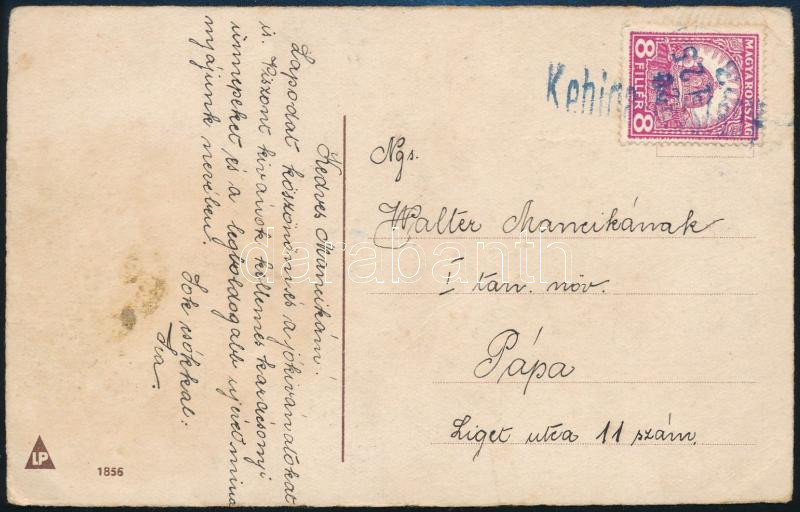 Kedves Mancikám!
Lapodat köszönöm és a jókivánatokat
is. Viszont kivánok kellemes karácsonyi
ünnepeket és a legboldogabb ujévet mind-
nyájunk nevében.
Sok csókkal:
Iva.
LP
1856
Kehida
MAGYARORSZÁG
8 FILLÉR 8
Ngs.
Walter Mancikának
I tan. növ.
Pápa
Liget utca 11 szám.
darabanth